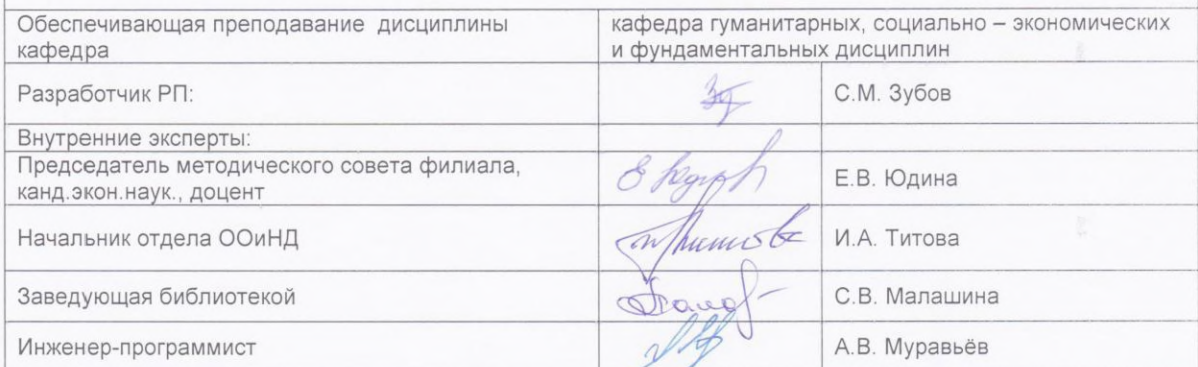 Обеспечивающая преподавание дисциплины
кафедра
кафедра гуманитарных, социально – экономических
и фундаментальных дисциплин
Разработчик РП:
С.М. Зубов
Внутренние эксперты:
Председатель методического совета филиала,
канд.экон.наук., доцент
Е.В. Юдина
Начальник отдела ООиНД
И.А. Титова
Заведующая библиотекой
С.В. Малашина
Инженер-программист
А.В. Муравьёв